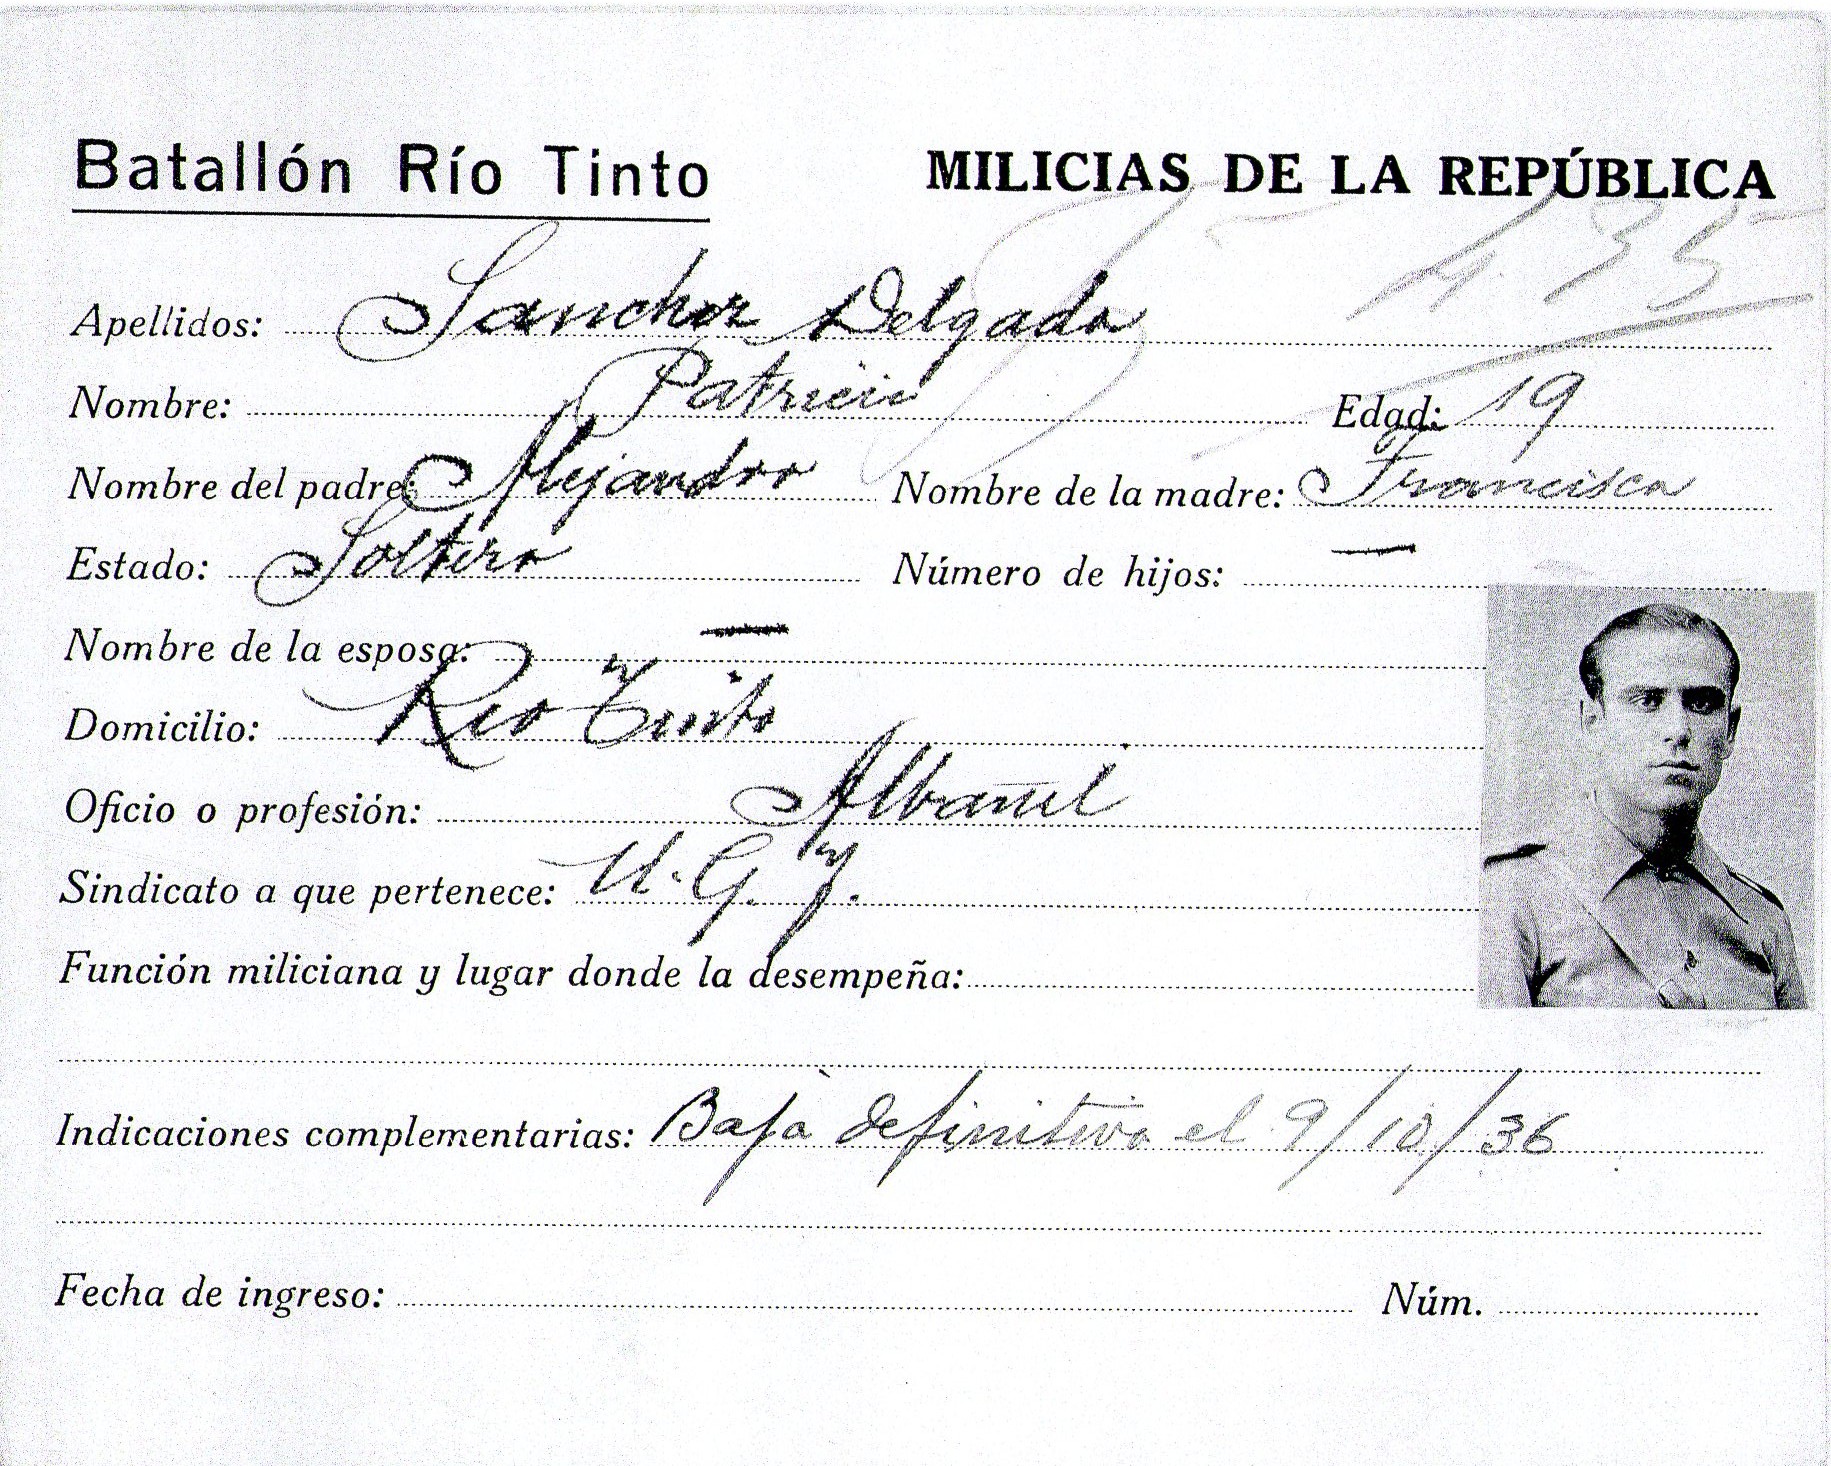 Batallón Río Tinto MILICIAS DE LA REPÚBLICA
Apellidos: Sanchez Delgado
Nombre: Patricio Edad: 19
Nombre del padre: Alejandro Nombre de la madre: Francisca
Estado: Soltero Número de hijos: —
Nombre de la esposa: —
Domicilio: Rio Tinto
Oficio o profesión: Albañil
Sindicato a que pertenece: U.G.T.
Función miliciana y lugar donde la desempeña:
Indicaciones complementarias: Baja definitiva el 9/10/36
Fecha de ingreso: Núm.